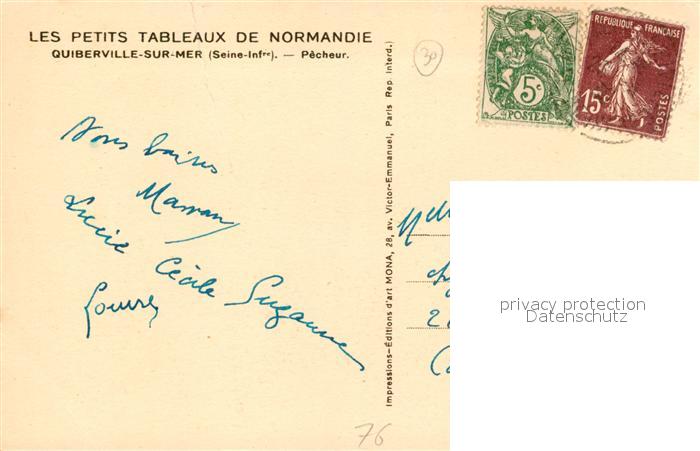 LES PETITS TABLEAUX DE NORMANDIE
QUIBERVILLE-SUR-MER (Seine-Infre). — Pêcheur.
30
5c
POSTES
RÉPUBLIQUE FRANÇAISE
15c
POSTES
Impressions-Éditions d'art MONA, 28, av. Victor-Emmanuel, Paris Rep. Interd.)
Bons baisers
Maman
Lucie Cécile Suzanne
privacy protection
Datenschutz
76